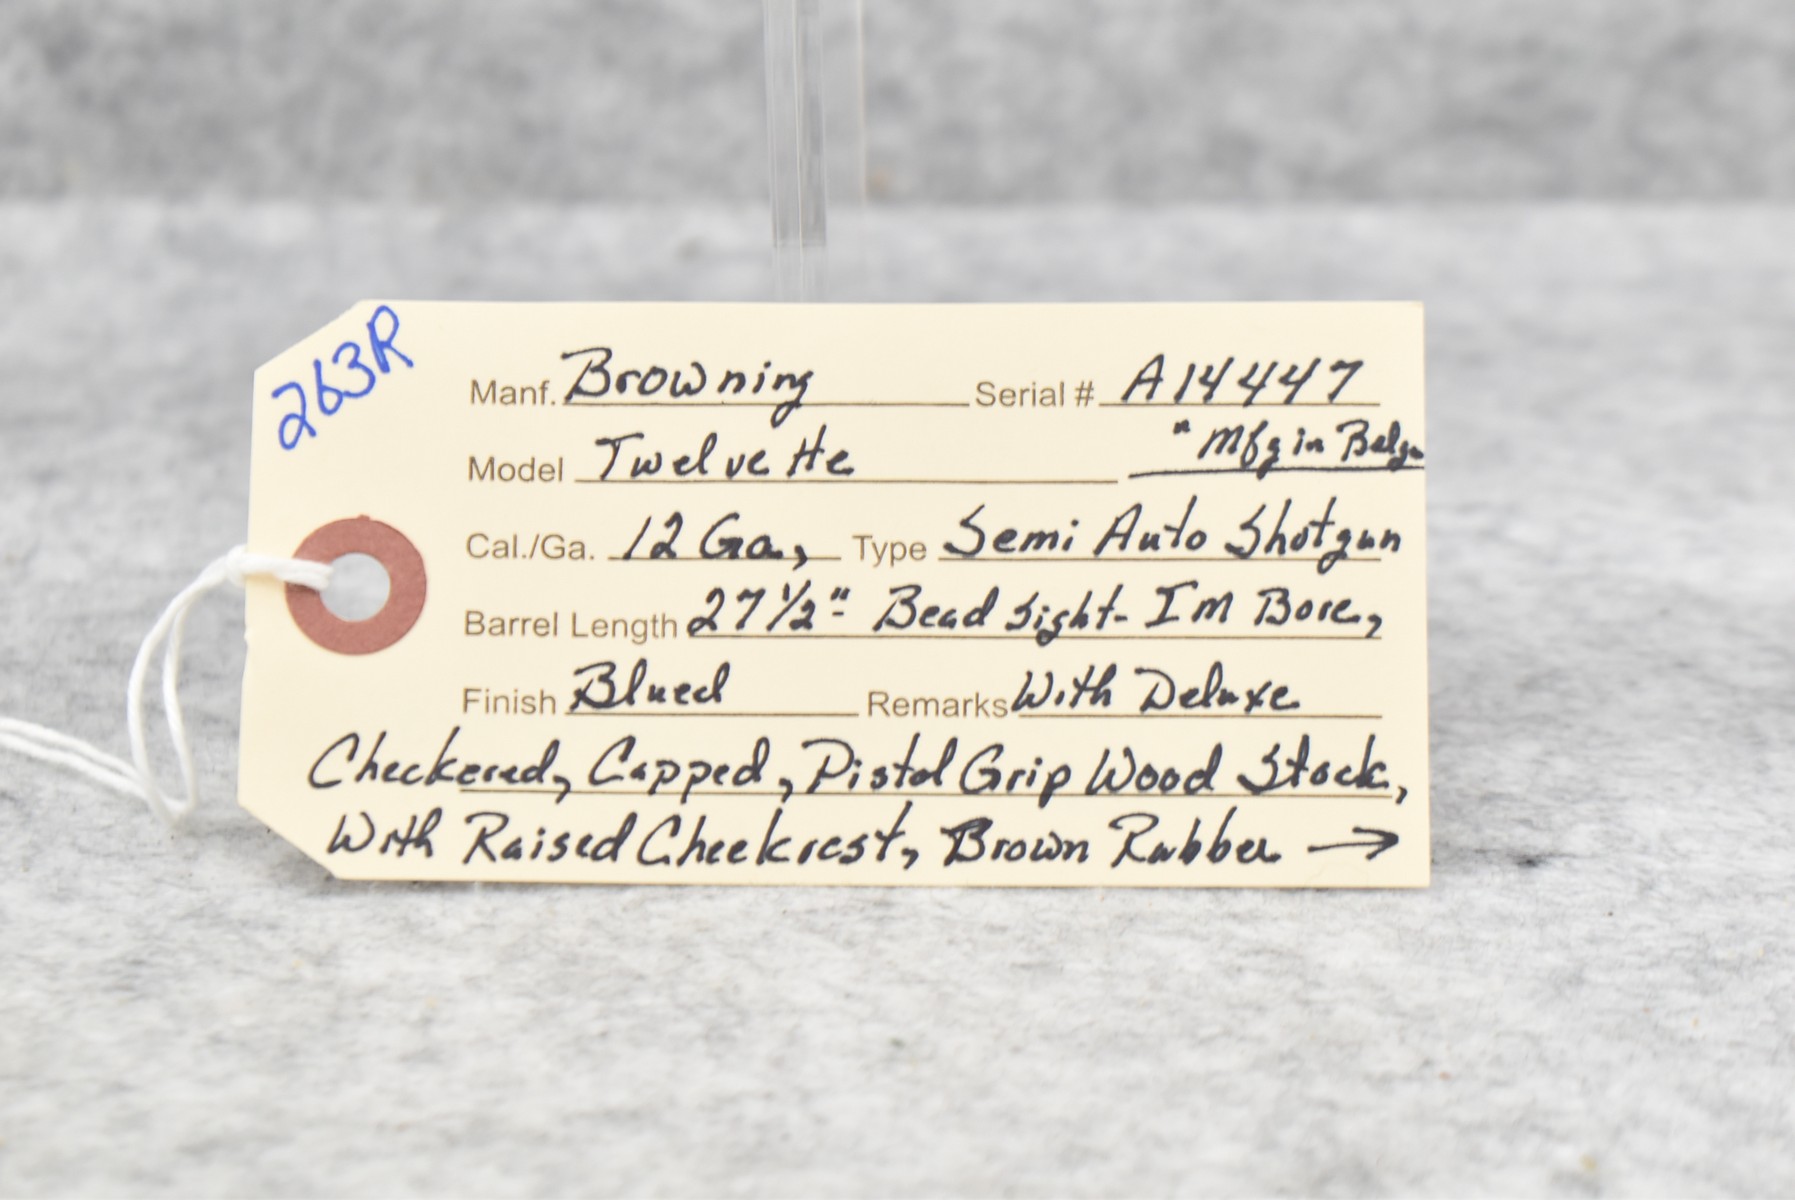 263R
Manf. Browning Serial # A14447
Model Twelvette "Mfg in Belgm
Cal./Ga. 12 Ga., Type Semi Auto Shotgun
Barrel Length 27 1/2" Bead Sight - IM Bore,
Finish Blued Remarks With Deluxe
Checkered, Capped, Pistol Grip Wood Stock,
With Raised Cheekrest, Brown Rubber →